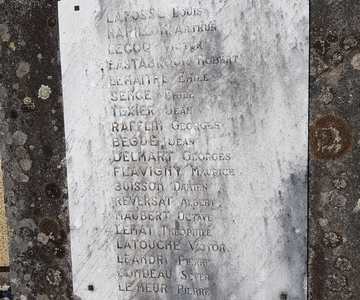 LAFOSSE LOUIS
PAPILLON ARTHUR
LECOQ VICTOR
ROBERT
LEMAITRE EMILE
SERGE EMILE
TEXIER JEAN
RAFFLIN GEORGES
BEGUE JEAN
DELMART GEORGES
FLAVIGNY MAURICE
BUISSON DAMIEN
REVERSAT ALBERT
MAUBERT OCTAVE
LEMAT THEOPHILE
LATOUCHE VICTOR
LEANDRI PIERRE
LOMBEAU
LE MEUR PIERRE